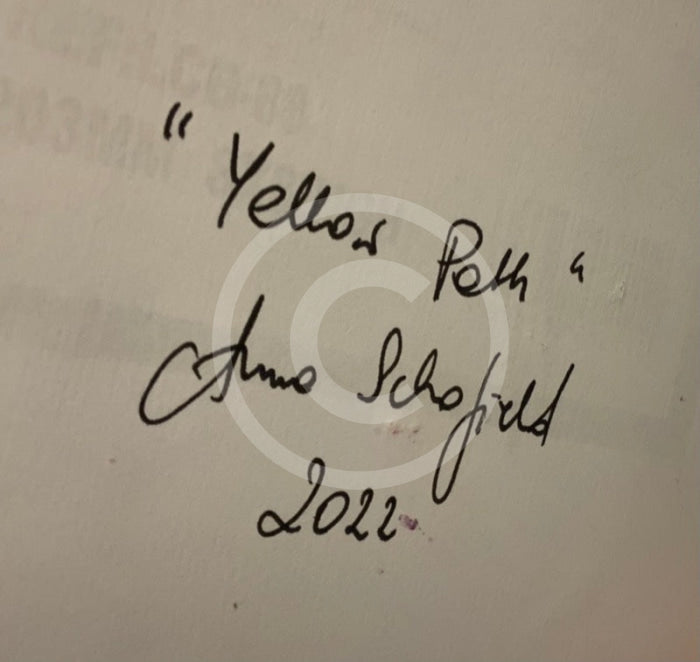 "Yellow Path"
Anna Schofield
2022